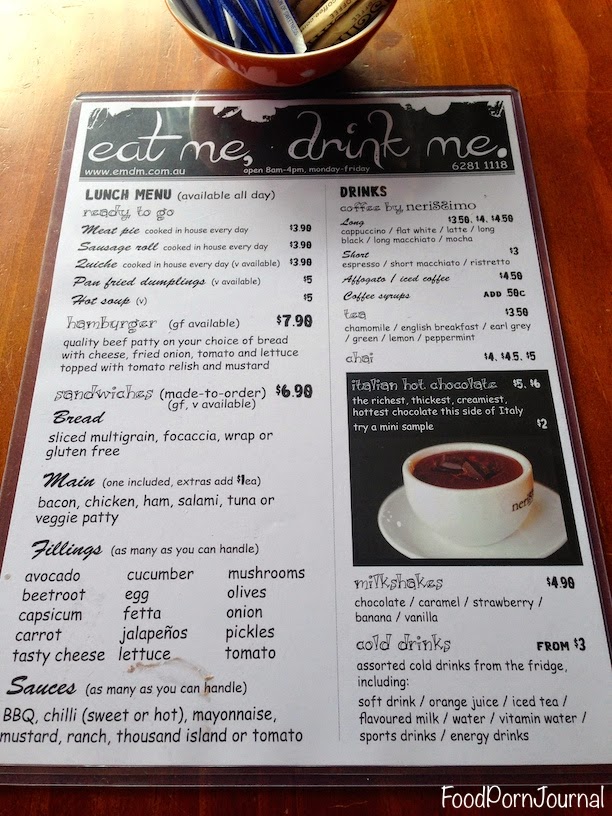 eat me, drink me.
www.emdm.com.au
open 8am-4pm, monday-friday
6281 1118
LUNCH MENU (available all day)
ready to go
Meat pie cooked in house every day $3.90
Sausage roll cooked in house every day $3.90
Quiche cooked in house every day (v available) $3.90
Pan fried dumplings (v available) $5
Hot soup (v) $5
hamburger (gf available) $7.90
quality beef patty on your choice of bread
with cheese, fried onion, tomato and lettuce
topped with tomato relish and mustard
sandwiches (made-to-order) $6.90
(gf, v available)
Bread
sliced multigrain, focaccia, wrap or
gluten free
Main (one included, extras add $1ea)
bacon, chicken, ham, salami, tuna or
veggie patty
Fillings (as many as you can handle)
avocado cucumber mushrooms
beetroot egg olives
capsicum fetta onion
carrot jalapeños pickles
tasty cheese lettuce tomato
Sauces (as many as you can handle)
BBQ, chilli (sweet or hot), mayonnaise,
mustard, ranch, thousand island or tomato
DRINKS
coffee by nerissimo
Long $3.50, $4, $4.50
cappuccino / flat white / latte / long
black / long macchiato / mocha
Short $3
espresso / short macchiato / ristretto
Affogato / iced coffee $4.50
Coffee syrups ADD .50c
tea $3.50
chamomile / english breakfast / earl grey
/ green / lemon / peppermint
chai $4, $4.5, $5
italian hot chocolate $5, $6
the richest, thickest, creamiest,
hottest chocolate this side of Italy
try a mini sample $2
milkshakes $4.90
chocolate / caramel / strawberry /
banana / vanilla
cold drinks FROM $3
assorted cold drinks from the fridge,
including:
soft drink / orange juice / iced tea /
flavoured milk / water / vitamin water /
sports drinks / energy drinks
FoodPornJournal